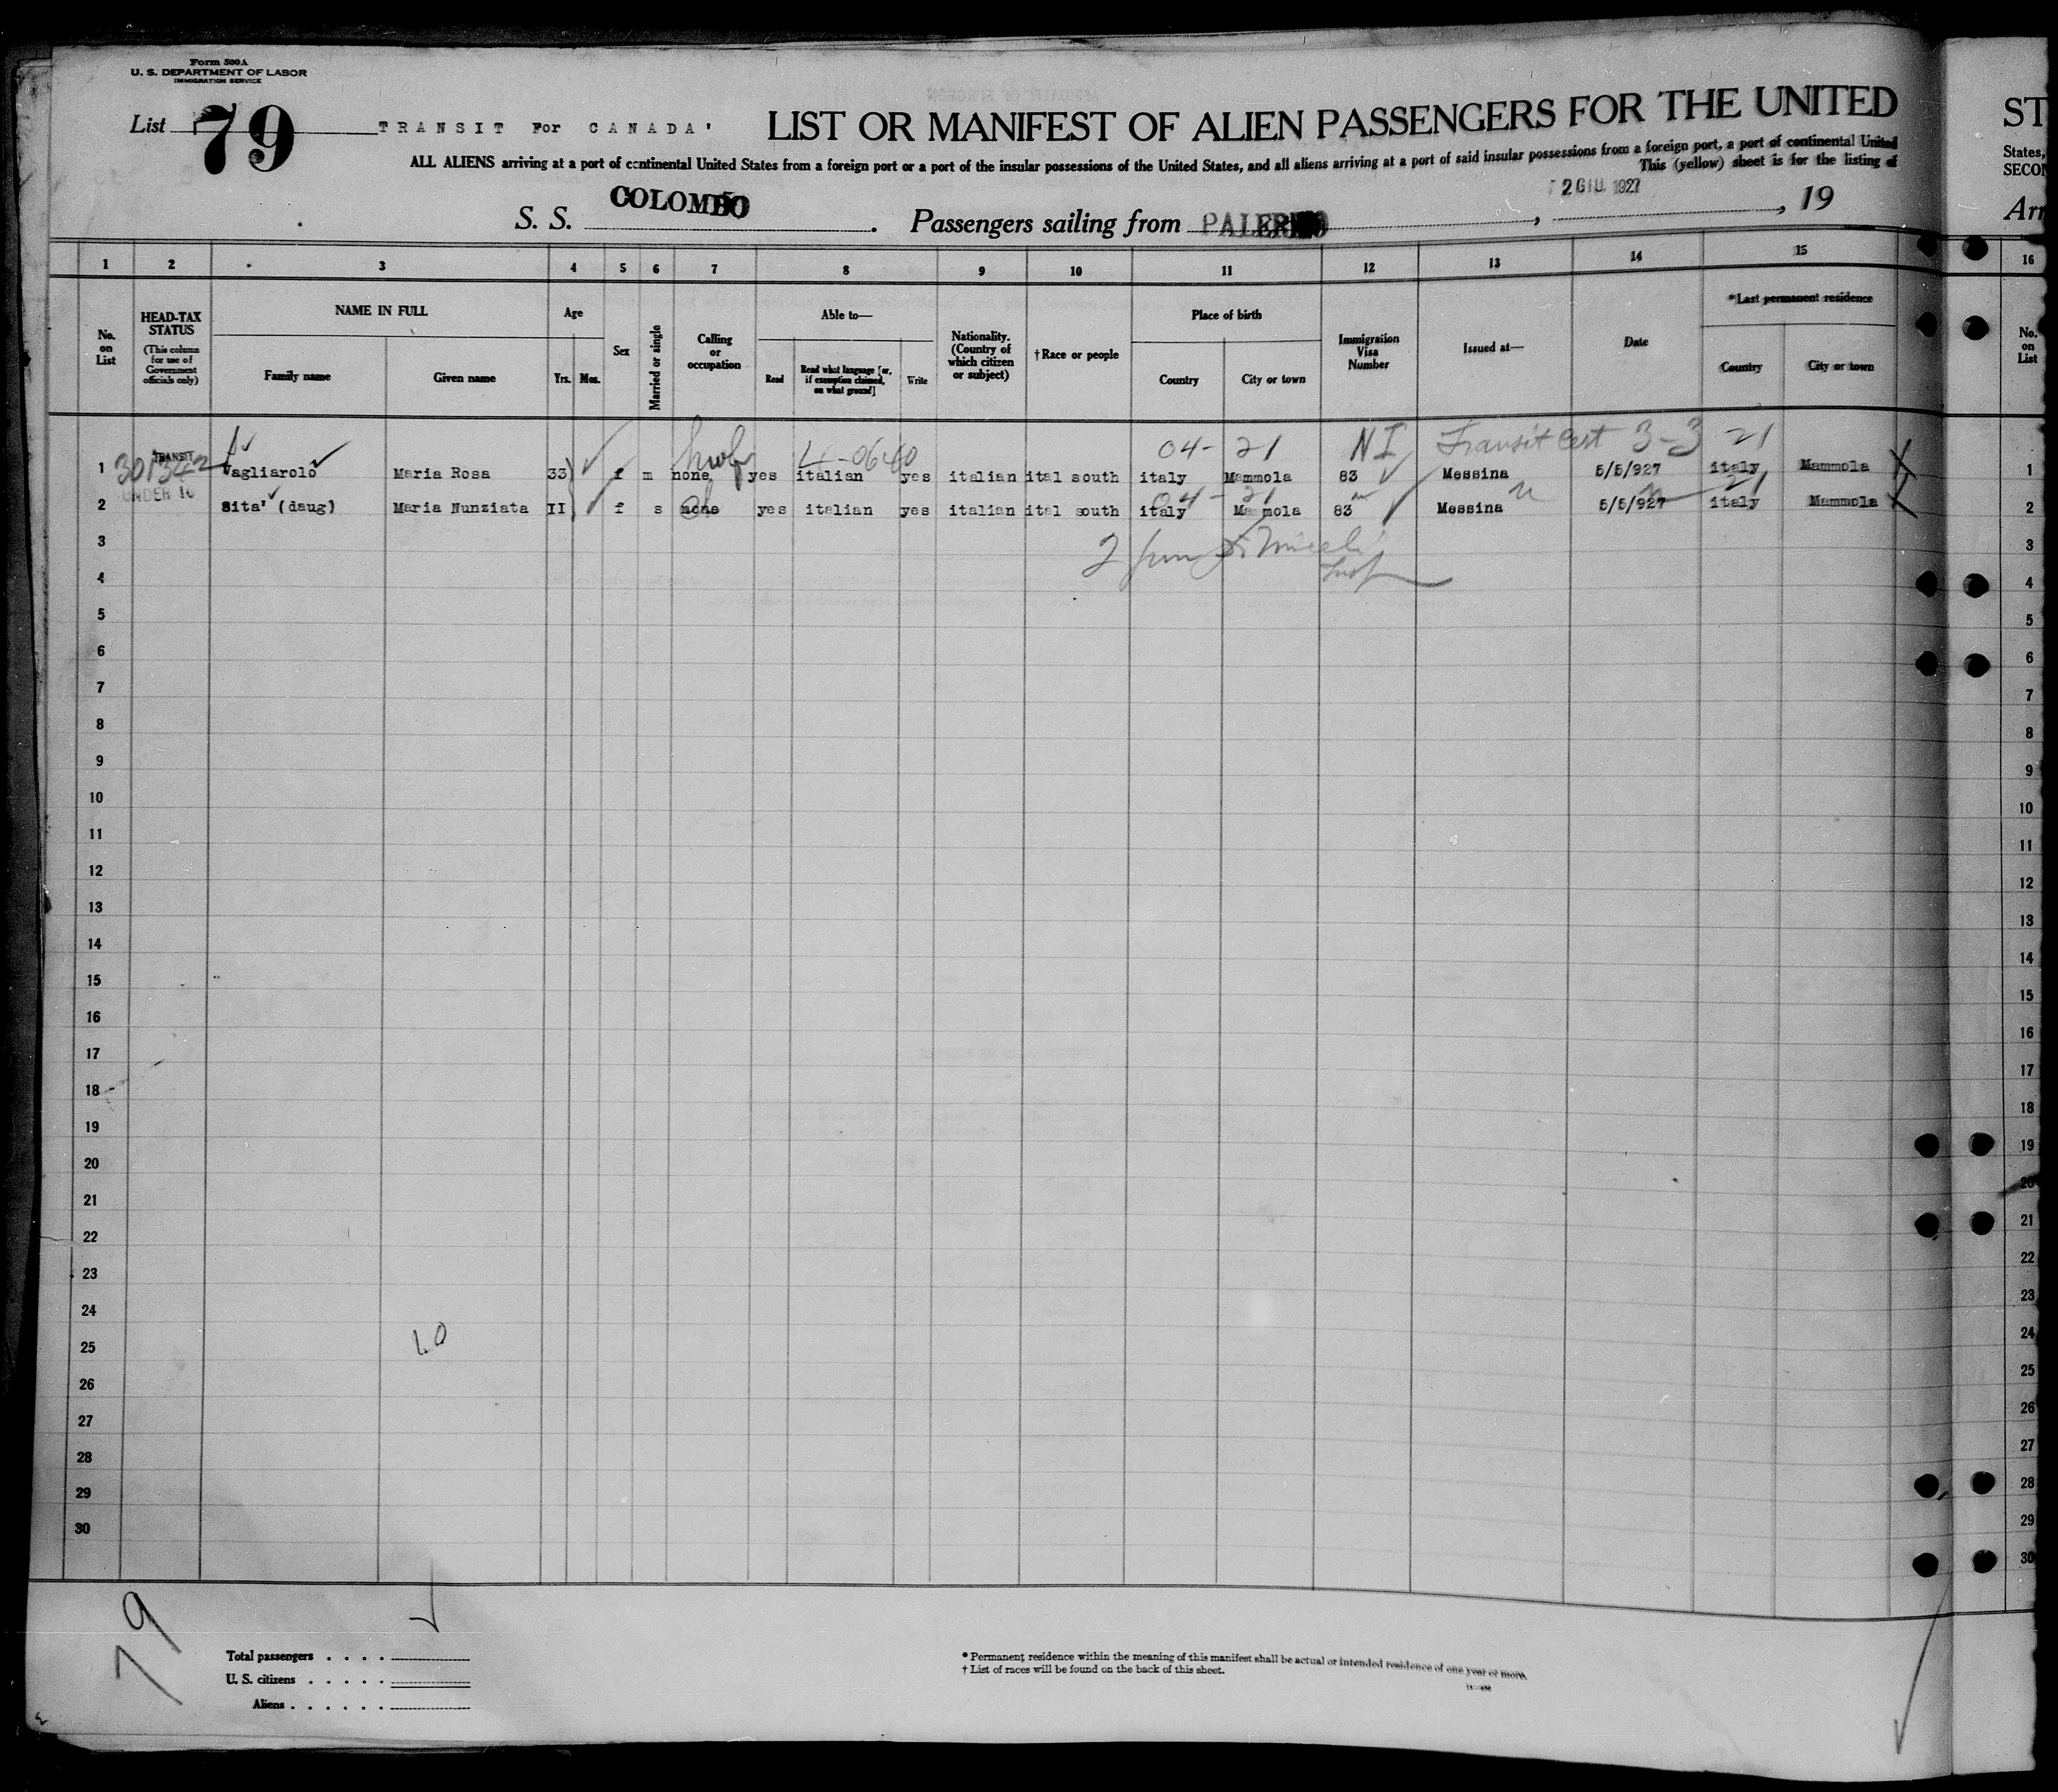 Form 500A
U. S. DEPARTMENT OF LABOR
IMMIGRATION SERVICE
List 79 TRANSIT For CANADA' LIST OR MANIFEST OF ALIEN PASSENGERS FOR THE UNITED
ALL ALIENS arriving at a port of continental United States from a foreign port or a port of the insular possessions of the United States, and all aliens arriving at a port of said insular possessions from a foreign port, a port of continental United
This (yellow) sheet is for the listing of
S. S. COLOMBO. Passengers sailing from PALERMO, 2 GIU. 1927, 19
1 2 3 4 5 6 7 8 9 10 11 12 13 14 15
No. on List
HEAD-TAX STATUS
(This column for use of Government officials only)
NAME IN FULL
Family name Given name
Age
Yrs. Mos.
Sex
Married or single
Calling or occupation
Able to—
Read Read what language [or, if exemption claimed, on what ground] Write
Nationality. (Country of which citizen or subject)
†Race or people
Place of birth
Country City or town
Immigration Visa Number
Issued at—
Date
*Last permanent residence
Country City or town
04- 21 NI Transit Cert 3-3 21
1 301342 TRANSIT Vagliarolo Maria Rosa 33 f m none yes italian yes italian ital south italy Mammola 83 Messina 5/5/927 italy Mammola
UNDER 16
04 - 21 21
2 Sita' (daug) Maria Nunziata II f s none yes italian yes italian ital south italy Mammola 83 Messina 5/5/927 italy Mammola
3
4
5
6
7
8
9
10
11
12
13
14
15
16
17
18
19
20
21
22
23
24
25
26
27
28
29
30
79
Total passengers . . . .
U. S. citizens . . . . .
Aliens . . . . . .
* Permanent residence within the meaning of this manifest shall be actual or intended residence of one year or more.
† List of races will be found on the back of this sheet.
ST
States,
SECON
Arr
16
No. on List
1
2
3
4
5
6
7
8
9
10
11
12
13
14
15
16
17
18
19
20
21
22
23
24
25
26
27
28
29
30